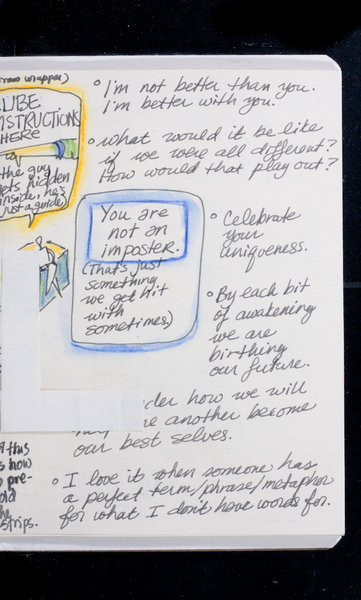 wrapper)
LUBE
INSTRUCTIONS
HERE
the guy
gets hidden
inside, he's
just a guide)
• I'm not better than you.
I'm better with you.
• What would it be like
if we were all different?
How would that play out?
You are
not an
imposter.
(That's just
something
we get hit
with
sometimes.)
• Celebrate
your
uniqueness.
• By each bit
of awakening
we are
birthing
our future.
der how we will
another become
our best selves.
• I love it when someone has
a perfect term/phrase/metaphor
for what I don't have words for.
this
how
pre-
old
the
strips.